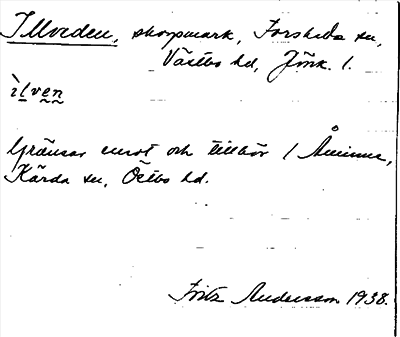 Illveden, skogsmark, Forsheda sn,
Västbo hd, Jönk. l.
ìlven
Gränsar emot och tillhör 1 Åminne,
Kärda sn, Östbo hd.
Fritz Andersson 1938.